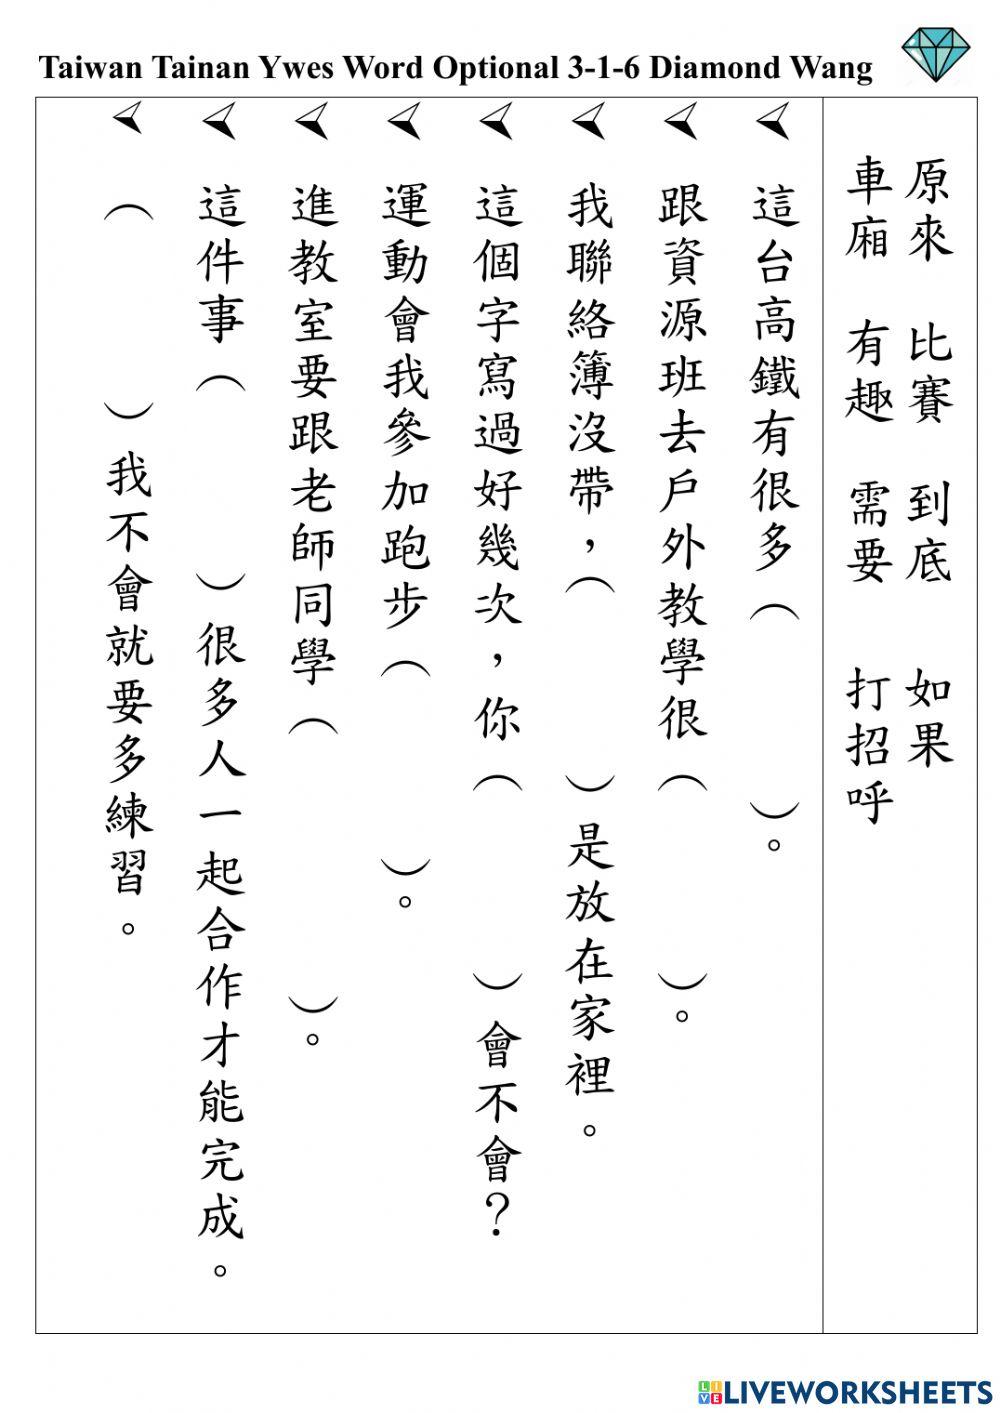 Taiwan Tainan Ywes Word Optional 3-1-6 Diamond Wang
原來 比賽 到底 如果
車廂 有趣 需要 打招呼
這台高鐵有很多( )。
跟資源班去戶外教學很( )。
我聯絡簿沒帶，( )是放在家裡。
這個字寫過好幾次，你( )會不會？
運動會我參加跑步( )。
進教室要跟老師同學( )。
這件事( )很多人一起合作才能完成。
( )我不會就要多練習。
LIVE LIVEWORKSHEETS